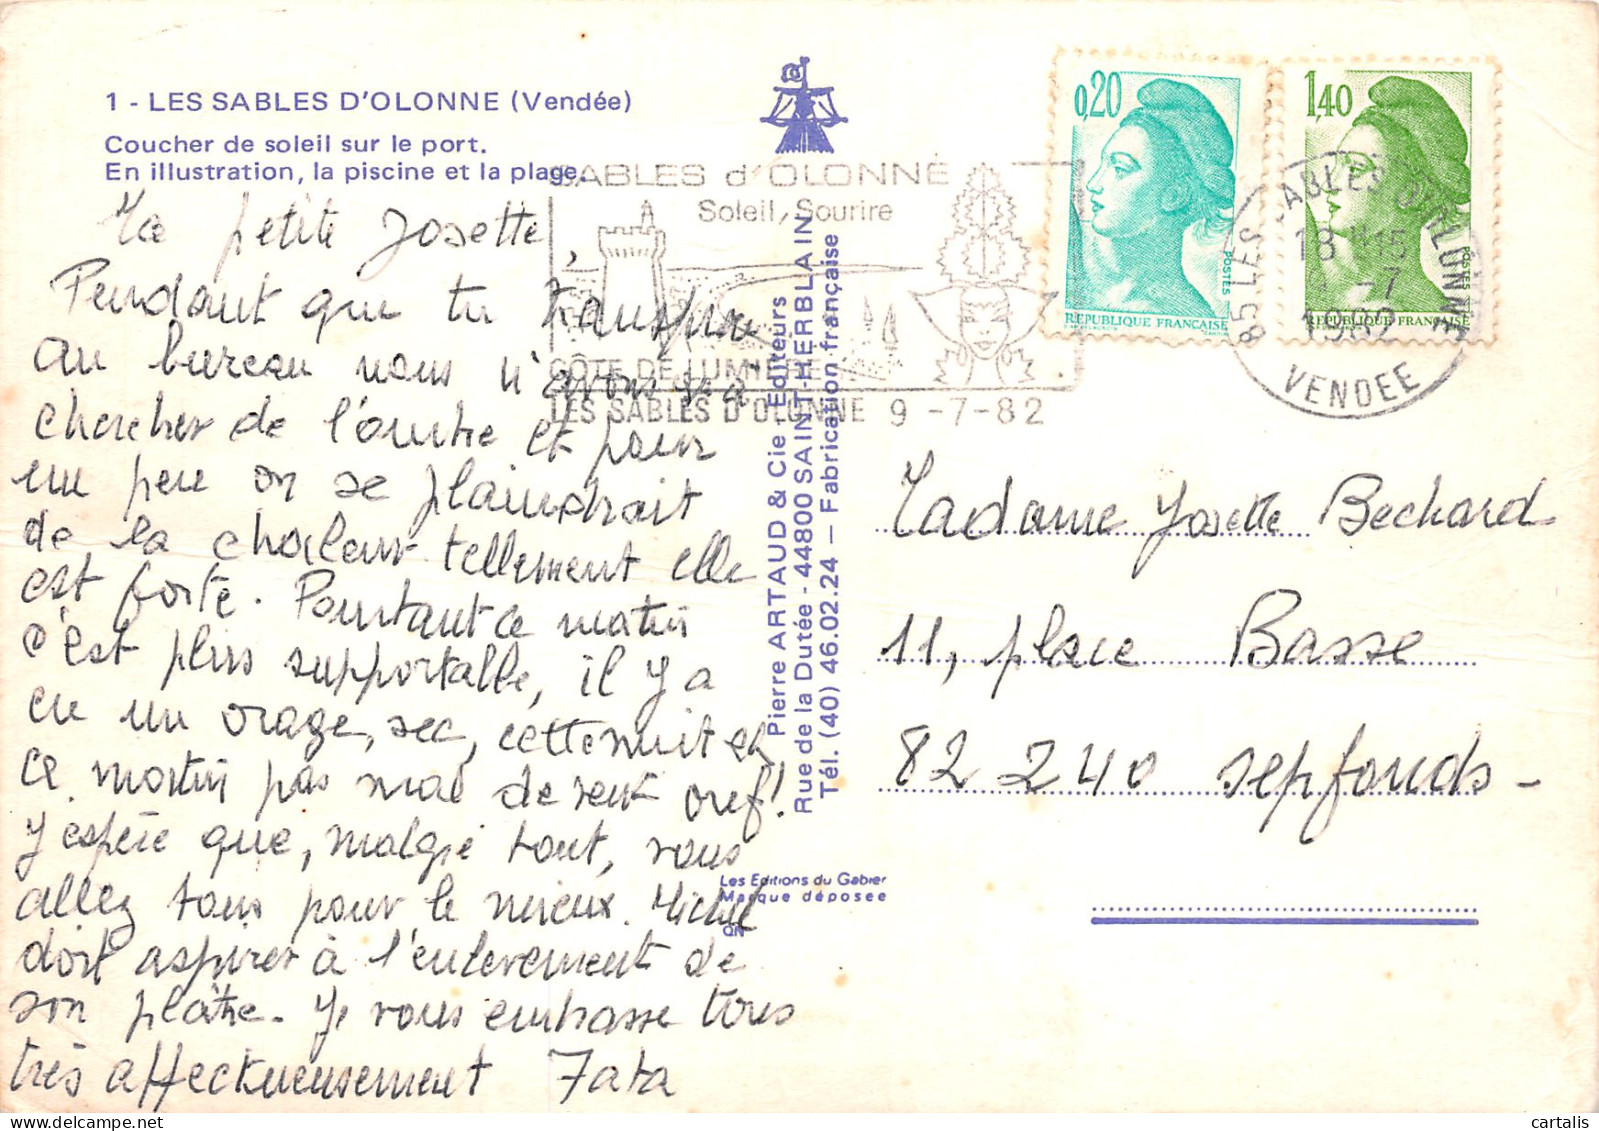 1 - LES SABLES D'OLONNE (Vendée)
Coucher de soleil sur le port.
En illustration, la piscine et la plage.
Ma petite Josette,
Pendant que tu
au bureau nous n'avons
chercher de l'ombre et pour
un peu on se plaindrait
de la chaleur tellement elle
est forte. Pourtant ce matin
c'est plus supportable, il y a
eu un orage, sec, cette nuit et
ce matin pas mal de vent. Bref!
J'espère que, malgré tout, vous
allez tous pour le mieux. Michel
doit aspirer à l'enlèvement de
son plâtre. Je vous embrasse tous
très affectueusement Tata
SABLES d'OLONNE
Soleil, Sourire
CÔTE DE LUMIERE
LES SABLES D'OLONNE 9 -7-82
Pierre ARTAUD & Cie Editeurs
Rue de la Dutée - 44800 SAINT-HERBLAIN
Tél. (40) 46.02.24 — Fabrication française
Les Editions du Gabier
Marque déposée
0,20
POSTES
REPUBLIQUE FRANÇAISE
1,40
POSTES
REPUBLIQUE FRANÇAISE
85 LES SABLES D'OLONNE
18 H 15
-7
1982
VENDEE
Madame Josette Bechard
11, place Basse
82 240 Septfonds -
cartalis